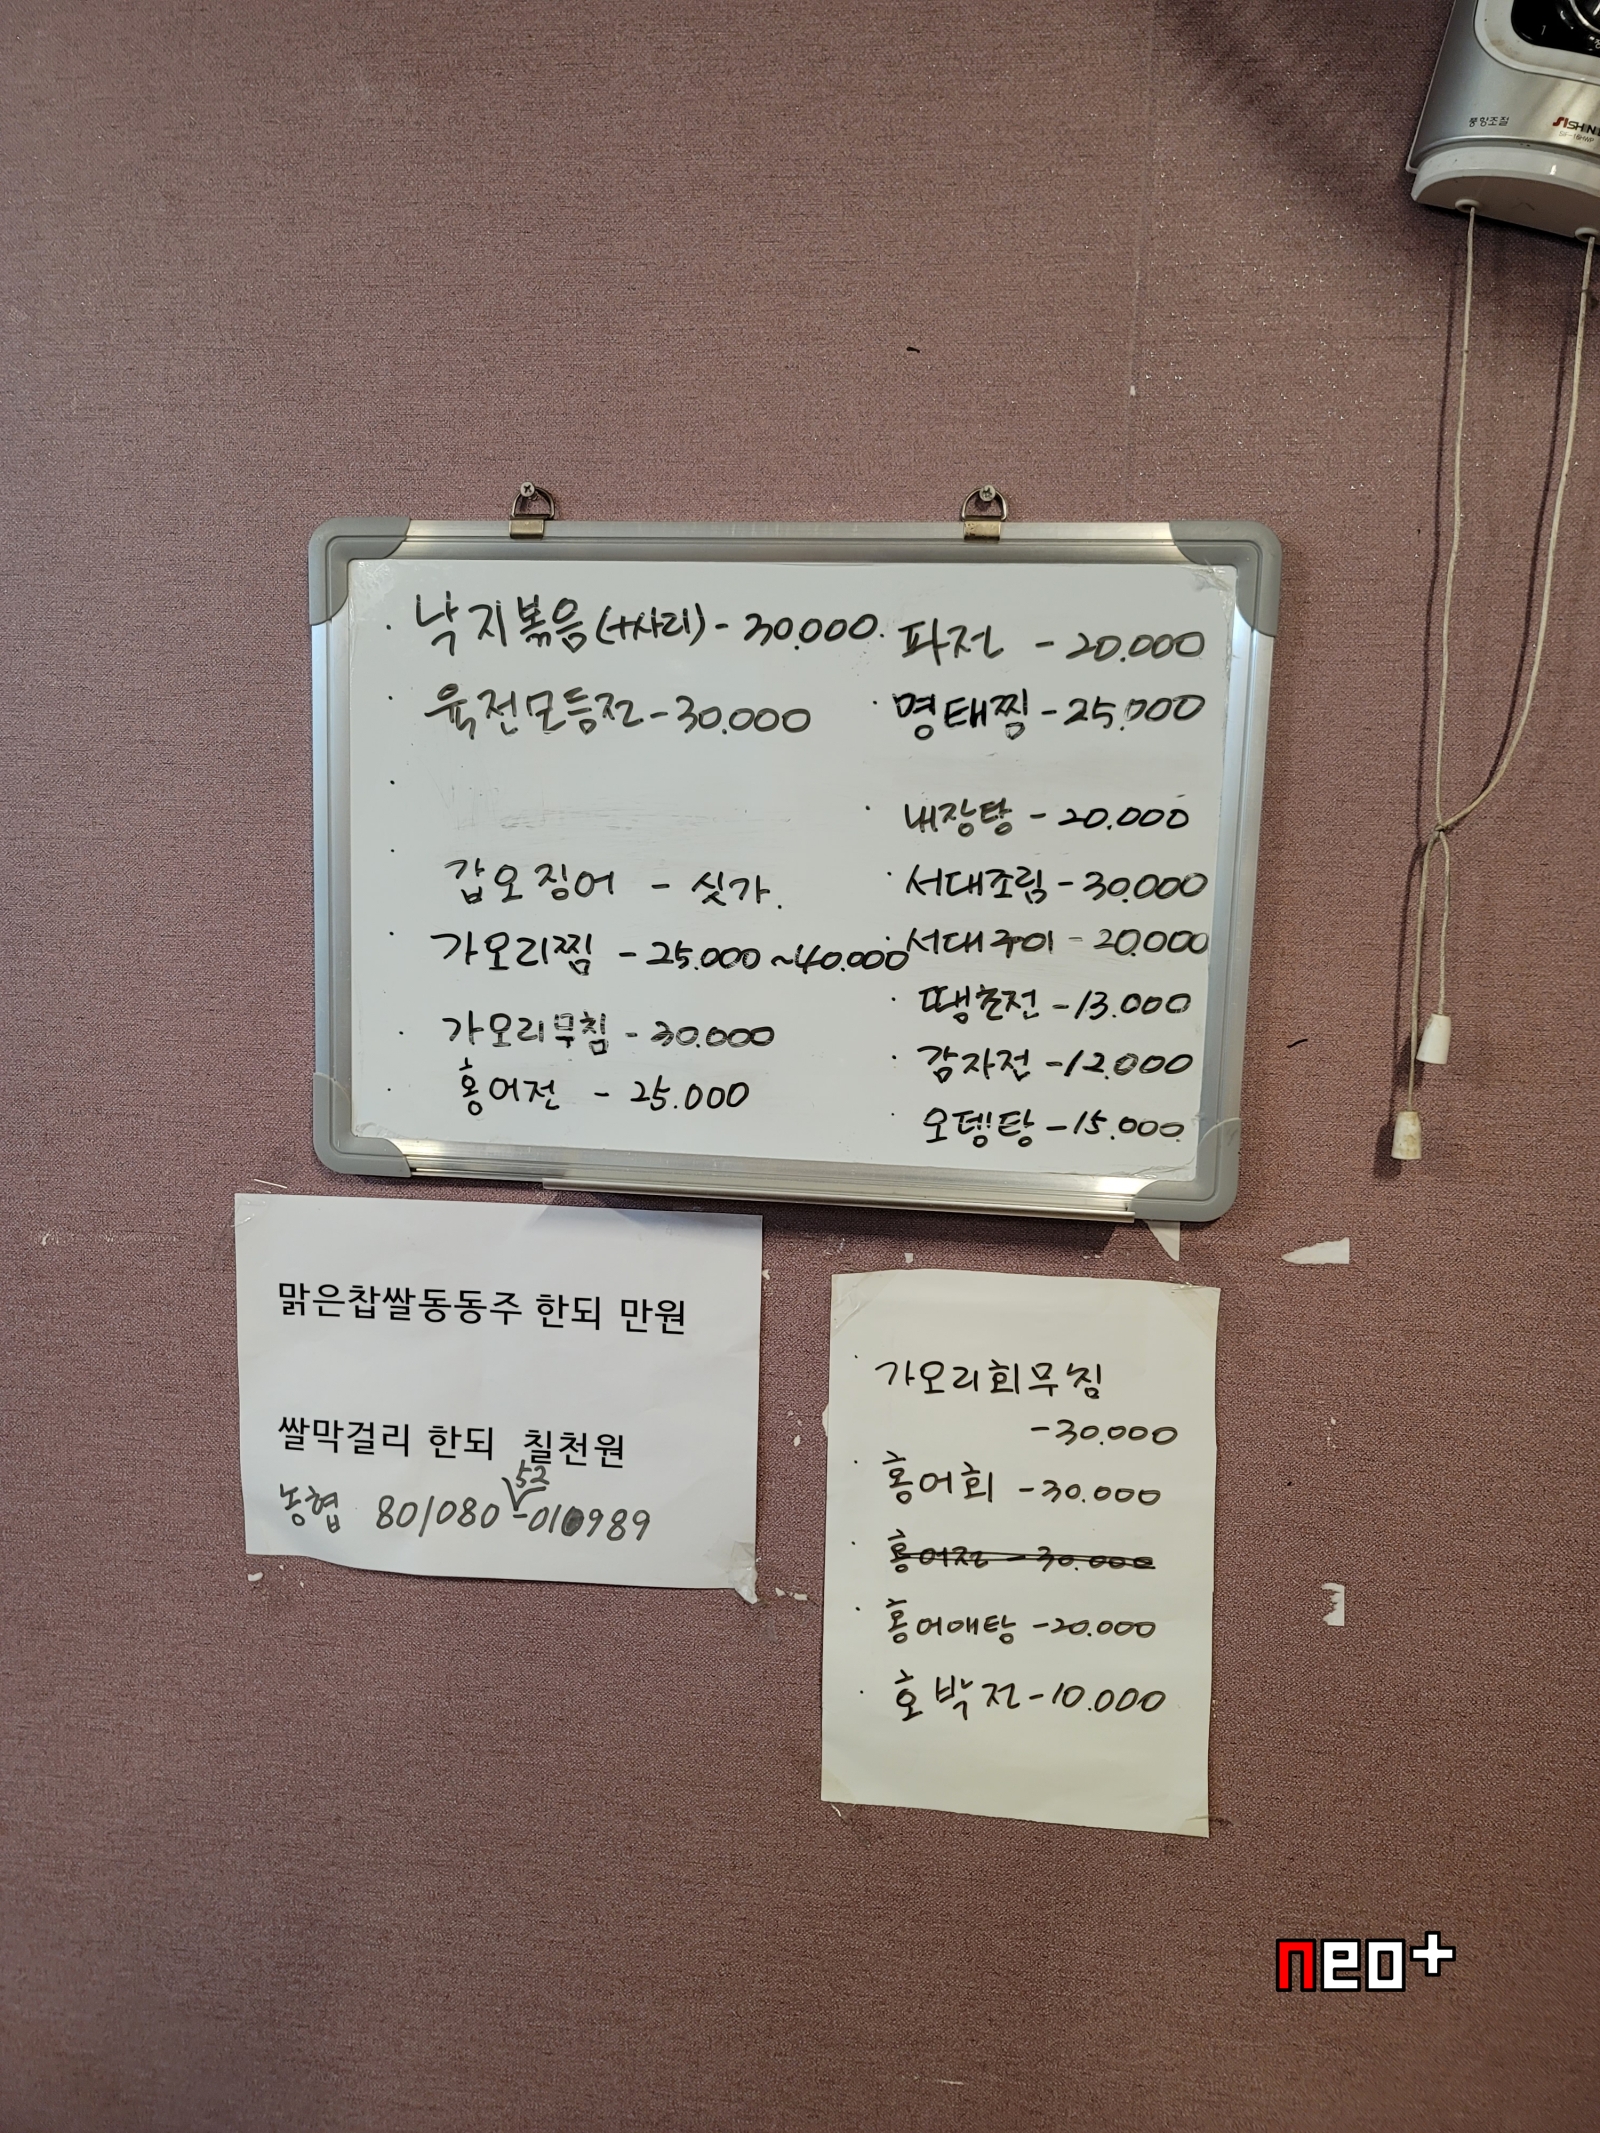 풍향조절
SHIN
· 낙지볶음(+사리) - 30.000
· 육전모듬전 - 30.000
·
·
갑오징어 - 싯가.
· 가오리찜 - 25.000 ~40.000
· 가오리무침 - 30.000
· 홍어전 - 25.000
· 파전 - 20.000
· 명태찜 - 25.000
· 내장탕 - 20.000
· 서대조림 - 30.000
· 서대구이 - 20.000
· 땡초전 - 13.000
· 감자전 - 12.000
· 오뎅탕 - 15.000
맑은찹쌀동동주 한되 만원
쌀막걸리 한되 칠천원
52
농협 801080 -010989
· 가오리회무침
- 30.000
· 홍어회 - 30.000
· 홍어전 - 30.000
· 홍어애탕 - 20.000
· 호박전 - 10.000
neo+